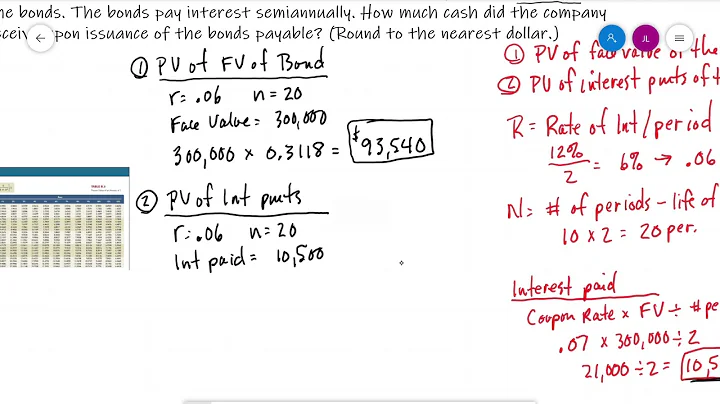 he bonds. The bonds pay interest semiannually. How much cash did the company
upon issuance of the bonds payable? (Round to the nearest dollar.)
JL
① PV of FV of Bond
r = .06 n = 20
Face Value = 300,000
300,000 × 0.3118 = $93,540
② PV of Int pmts
r = .06 n = 20
Int paid = 10,500
① PV of face value of the
② PV of interest pmts of t
R = Rate of Int / period
12%
2
= 6% → .06
N = # of periods - life of
10 × 2 = 20 per.
Interest paid
Coupon Rate × FV ÷ # pe
.07 × 300,000 ÷ 2
21,000 ÷ 2 = 10,5